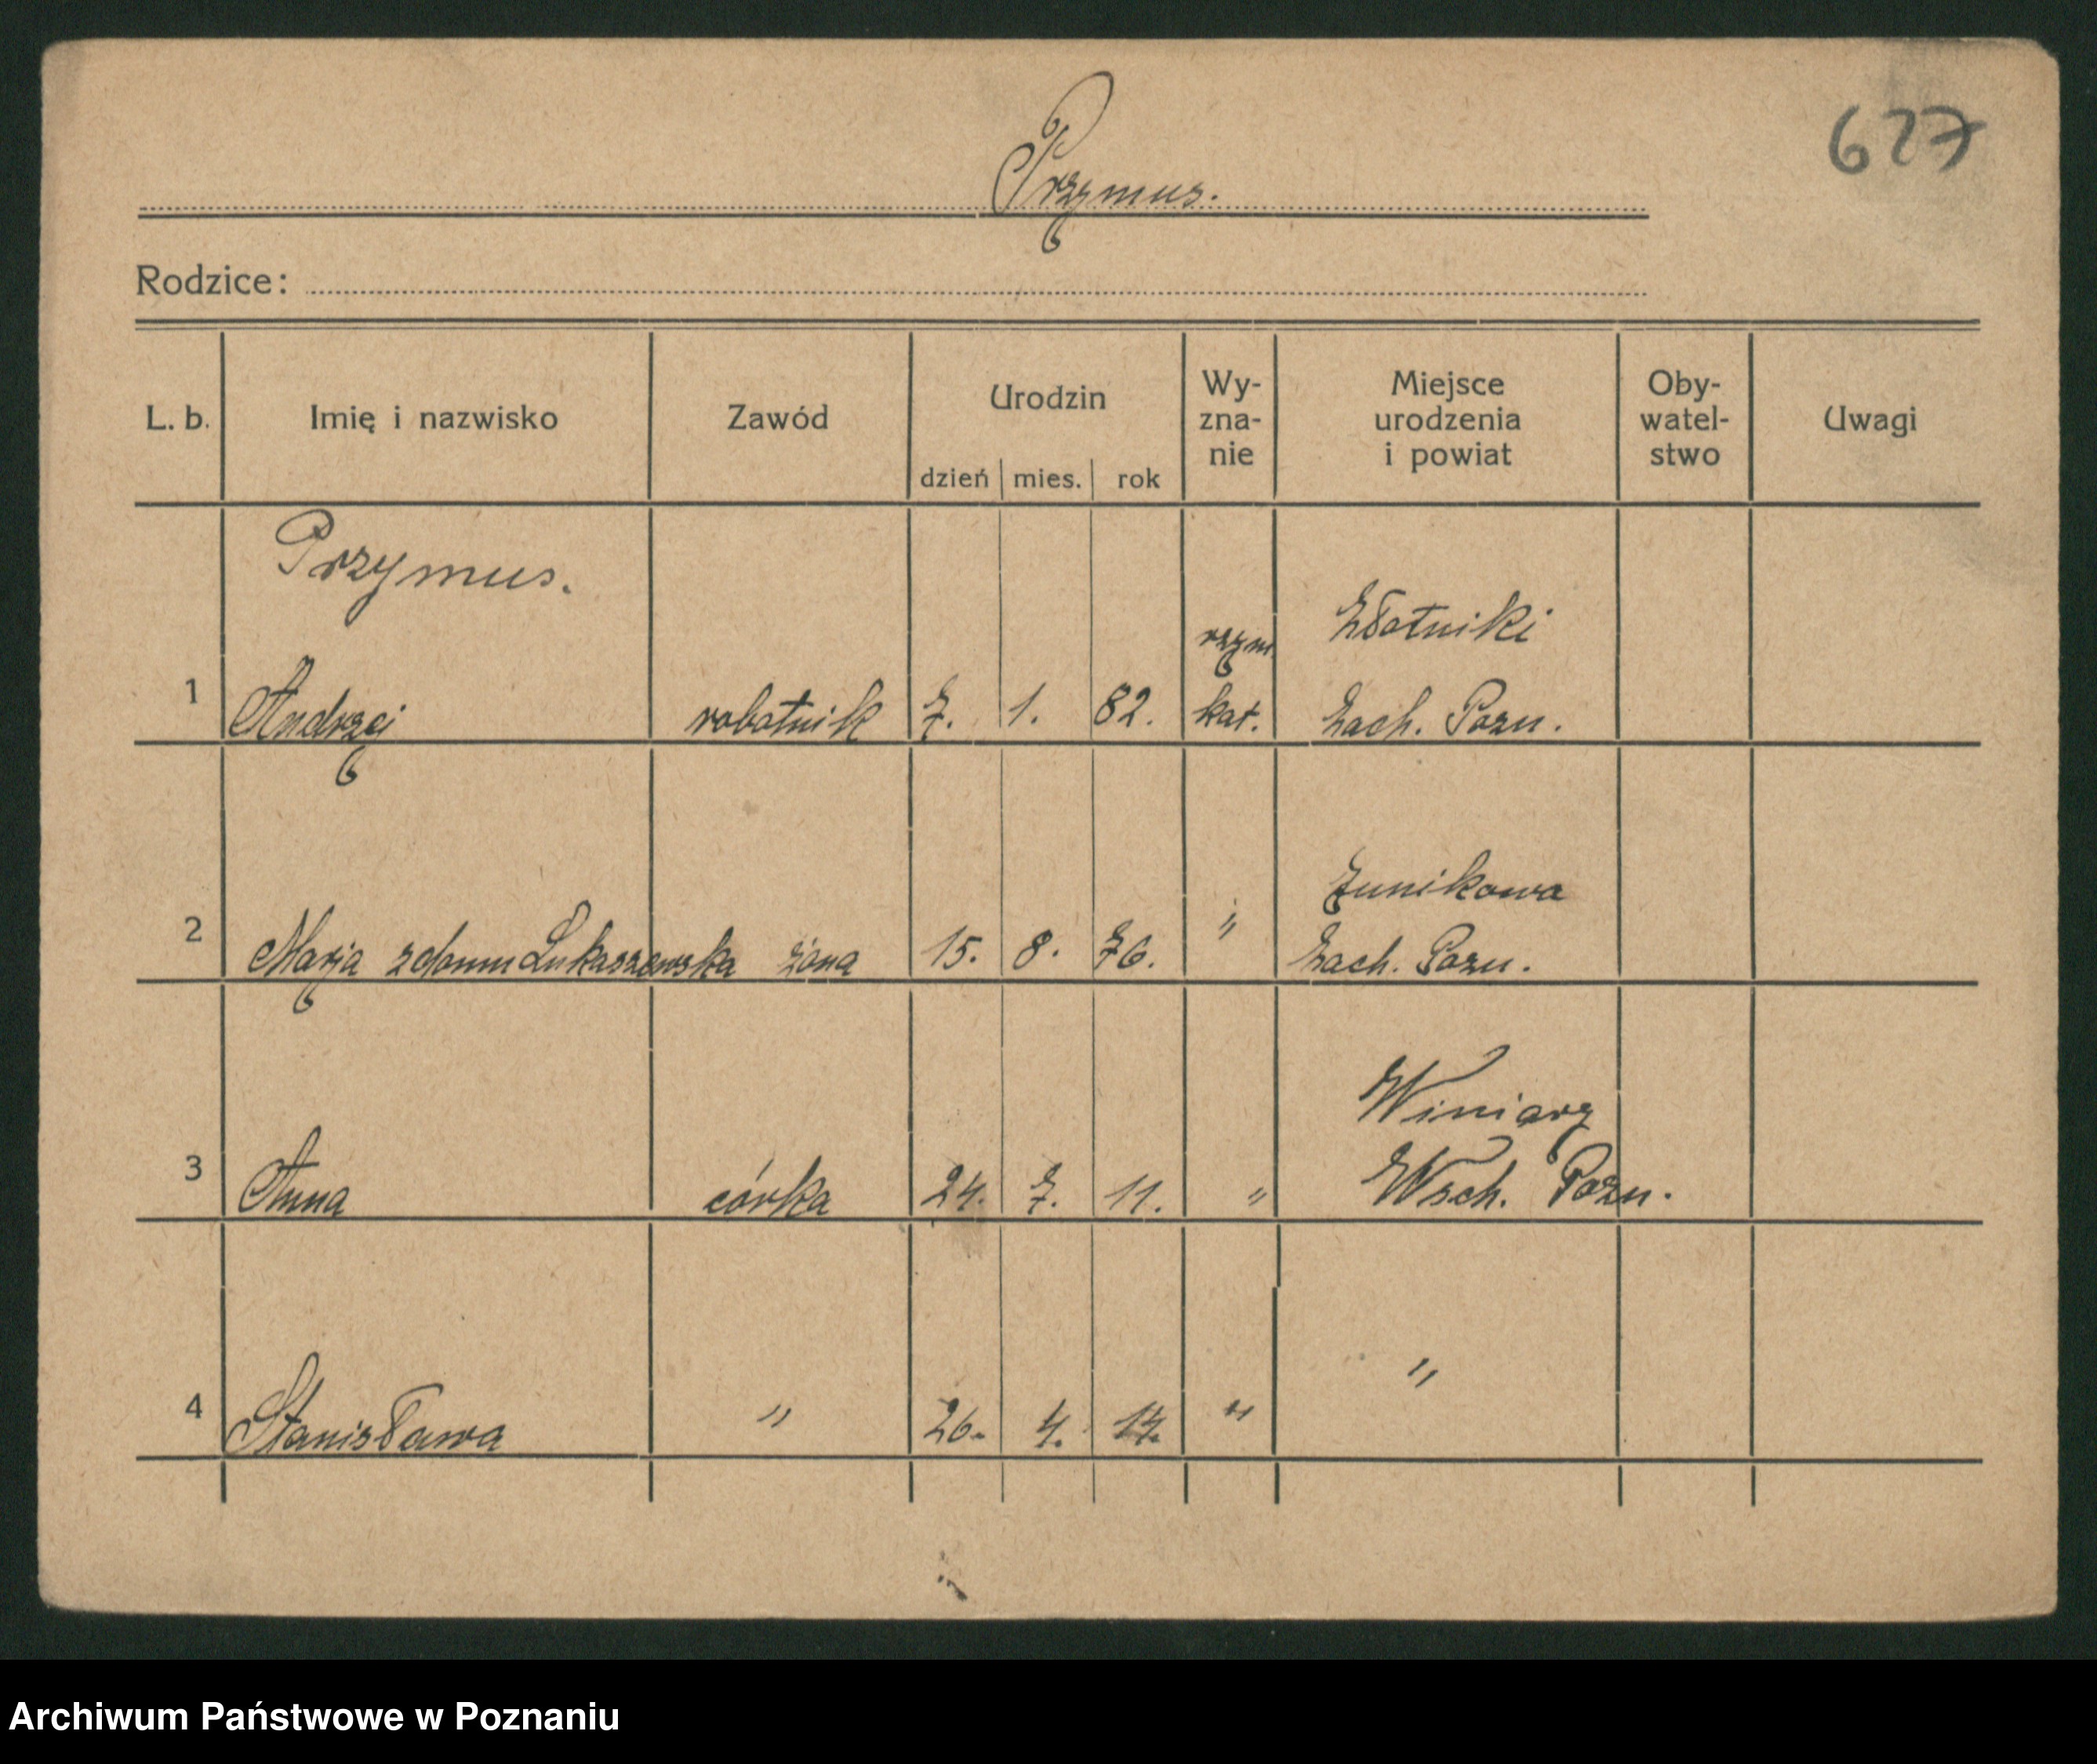 627
Przymus.
Rodzice:
L. b. Imię i nazwisko Zawód Urodzin dzień mies. rok Wy-zna-nie Miejsce urodzenia i powiat Oby-watel-stwo Uwagi
Przymus.
rzym. Złotniki
1 Andrzej robotnik 7. 1. 82. kat. Zach. Pozn.
Junikowa
2 Marja z domu Łukaszewska żona 15. 8. 76. " Zach. Pozn.
Winiary
3 Anna córka 24. 7. 11. " Wsch. Pozn.
4 Stanisława " 26. 4. " "
Archiwum Państwowe w Poznaniu